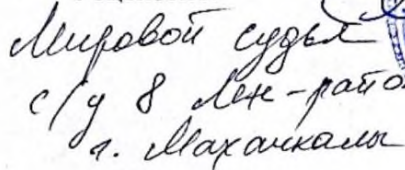 Мировой судья
с/у 8 Лен-райо
г. Махачкалы